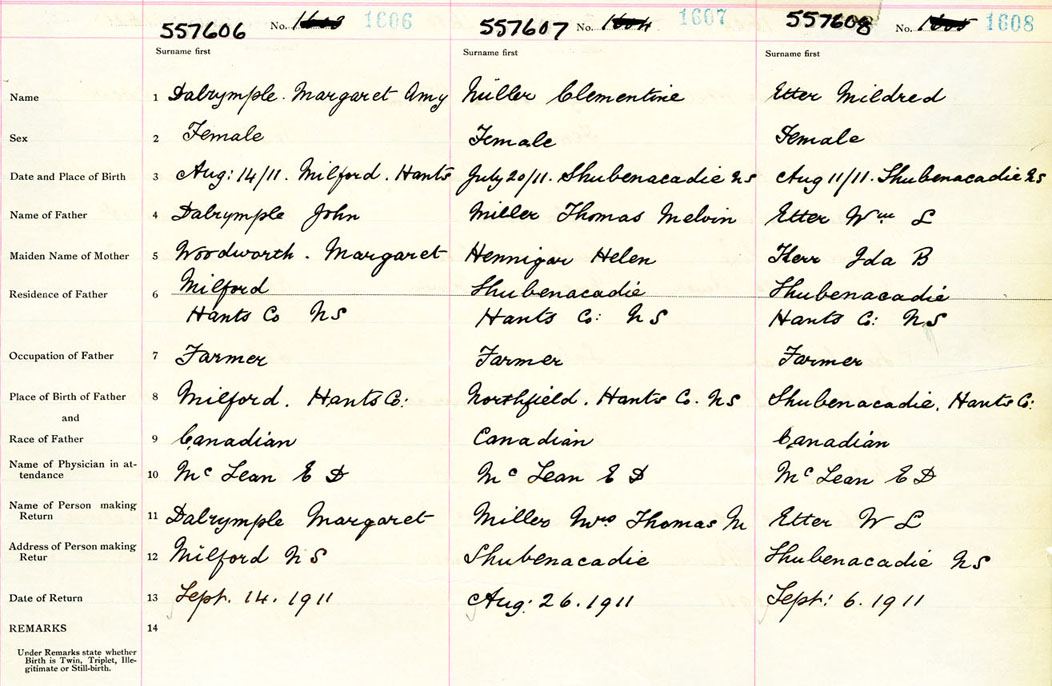 557606 No. 1606 557607 No. 1607 557608 No. 1608
Surname first Surname first Surname first
Name 1 Dalrymple. Margaret Amy Miller Clementine Etter Mildred
Sex 2 Female Female Female
Date and Place of Birth 3 Aug: 14/11. Milford. Hants July 20/11. Shubenacadie NS Aug 11/11. Shubenacadie NS
Name of Father 4 Dalrymple John Miller Thomas Melvin Etter Wm L
Maiden Name of Mother 5 Woodworth. Margaret Hennigar Helen Kerr Ida B
Residence of Father 6 Milford Shubenacadie Shubenacadie
Hants Co NS Hants Co: NS Hants Co: NS
Occupation of Father 7 Farmer Farmer Farmer
Place of Birth of Father 8 Milford. Hants Co: Northfield. Hants Co. NS Shubenacadie. Hants Co:
and
Race of Father 9 Canadian Canadian Canadian
Name of Physician in at-
tendance 10 Mc Lean E D Mc Lean E D Mc Lean E D
Name of Person making
Return 11 Dalrymple Margaret Miller Mrs Thomas M Etter W L
Address of Person making
Retur 12 Milford NS Shubenacadie Shubenacadie NS
Date of Return 13 Sept. 14. 1911 Aug: 26. 1911 Sept: 6. 1911
REMARKS 14
Under Remarks state whether
Birth is Twin, Triplet, Ille-
gitimate or Still-birth.